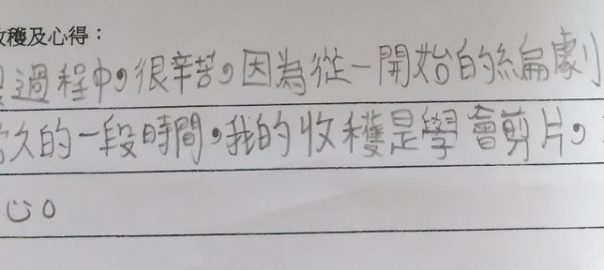 穫及心得：
過程中，很辛苦，因為從一開始的編劇
久的一段時間，我的收穫是學會剪片，
心。